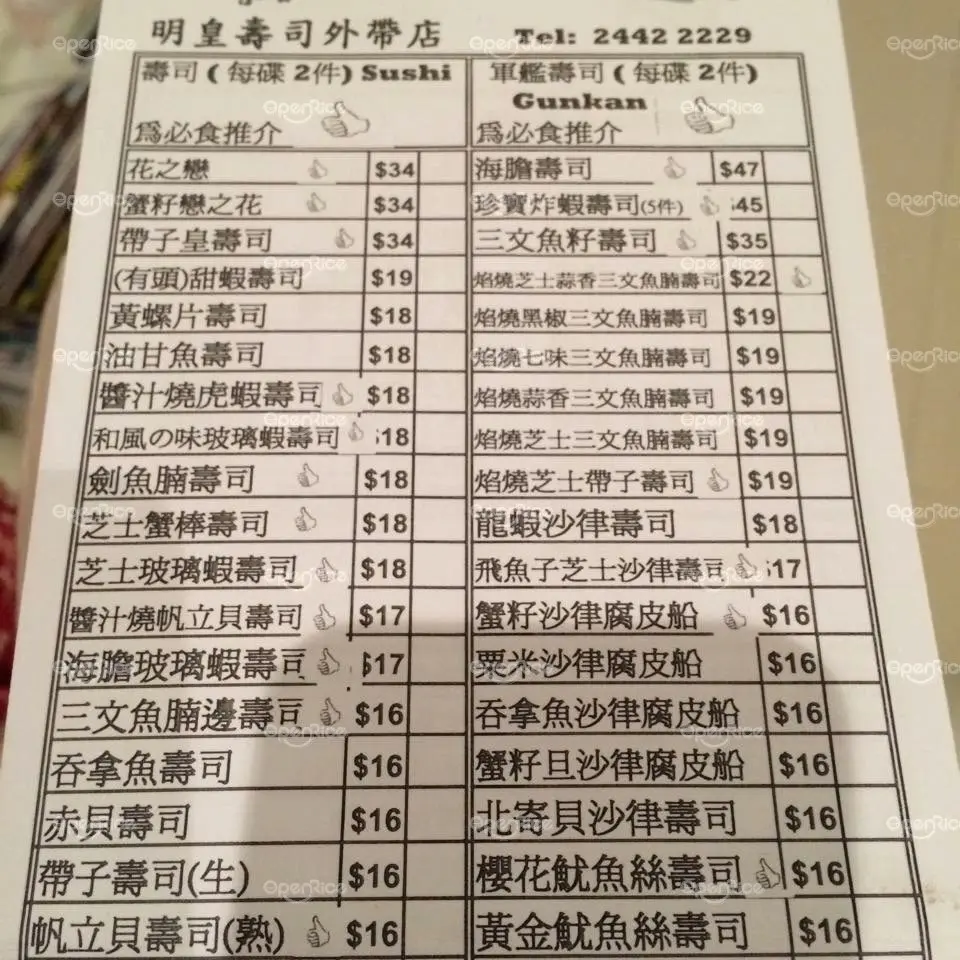 明皇壽司外帶店 Tel: 2442 2229
壽司 ( 每碟 2件) Sushi
為必食推介
花之戀 $34
蟹籽戀之花 $34
帶子皇壽司 $34
(有頭)甜蝦壽司 $19
黃螺片壽司 $18
油甘魚壽司 $18
醬汁燒虎蝦壽司 $18
和風の味玻璃蝦壽司 $18
劍魚腩壽司 $18
芝士蟹棒壽司 $18
芝士玻璃蝦壽司 $18
醬汁燒帆立貝壽司 $17
海膽玻璃蝦壽司 $17
三文魚腩邊壽司 $16
吞拿魚壽司 $16
赤貝壽司 $16
帶子壽司(生) $16
帆立貝壽司(熟) $16
軍艦壽司 ( 每碟 2件)
Gunkan
為必食推介
海膽壽司 $47
珍寶炸蝦壽司(5件) 45
三文魚籽壽司 $35
焰燒芝士蒜香三文魚腩壽司 $22
焰燒黑椒三文魚腩壽司 $19
焰燒七味三文魚腩壽司 $19
焰燒蒜香三文魚腩壽司 $19
焰燒芝士三文魚腩壽司 $19
焰燒芝士帶子壽司 $19
龍蝦沙律壽司 $18
飛魚子芝士沙律壽司 17
蟹籽沙律腐皮船 $16
粟米沙律腐皮船 $16
吞拿魚沙律腐皮船 $16
蟹籽旦沙律腐皮船 $16
北寄貝沙律壽司 $16
櫻花魷魚絲壽司 $16
黃金魷魚絲壽司 $16
OpenRice